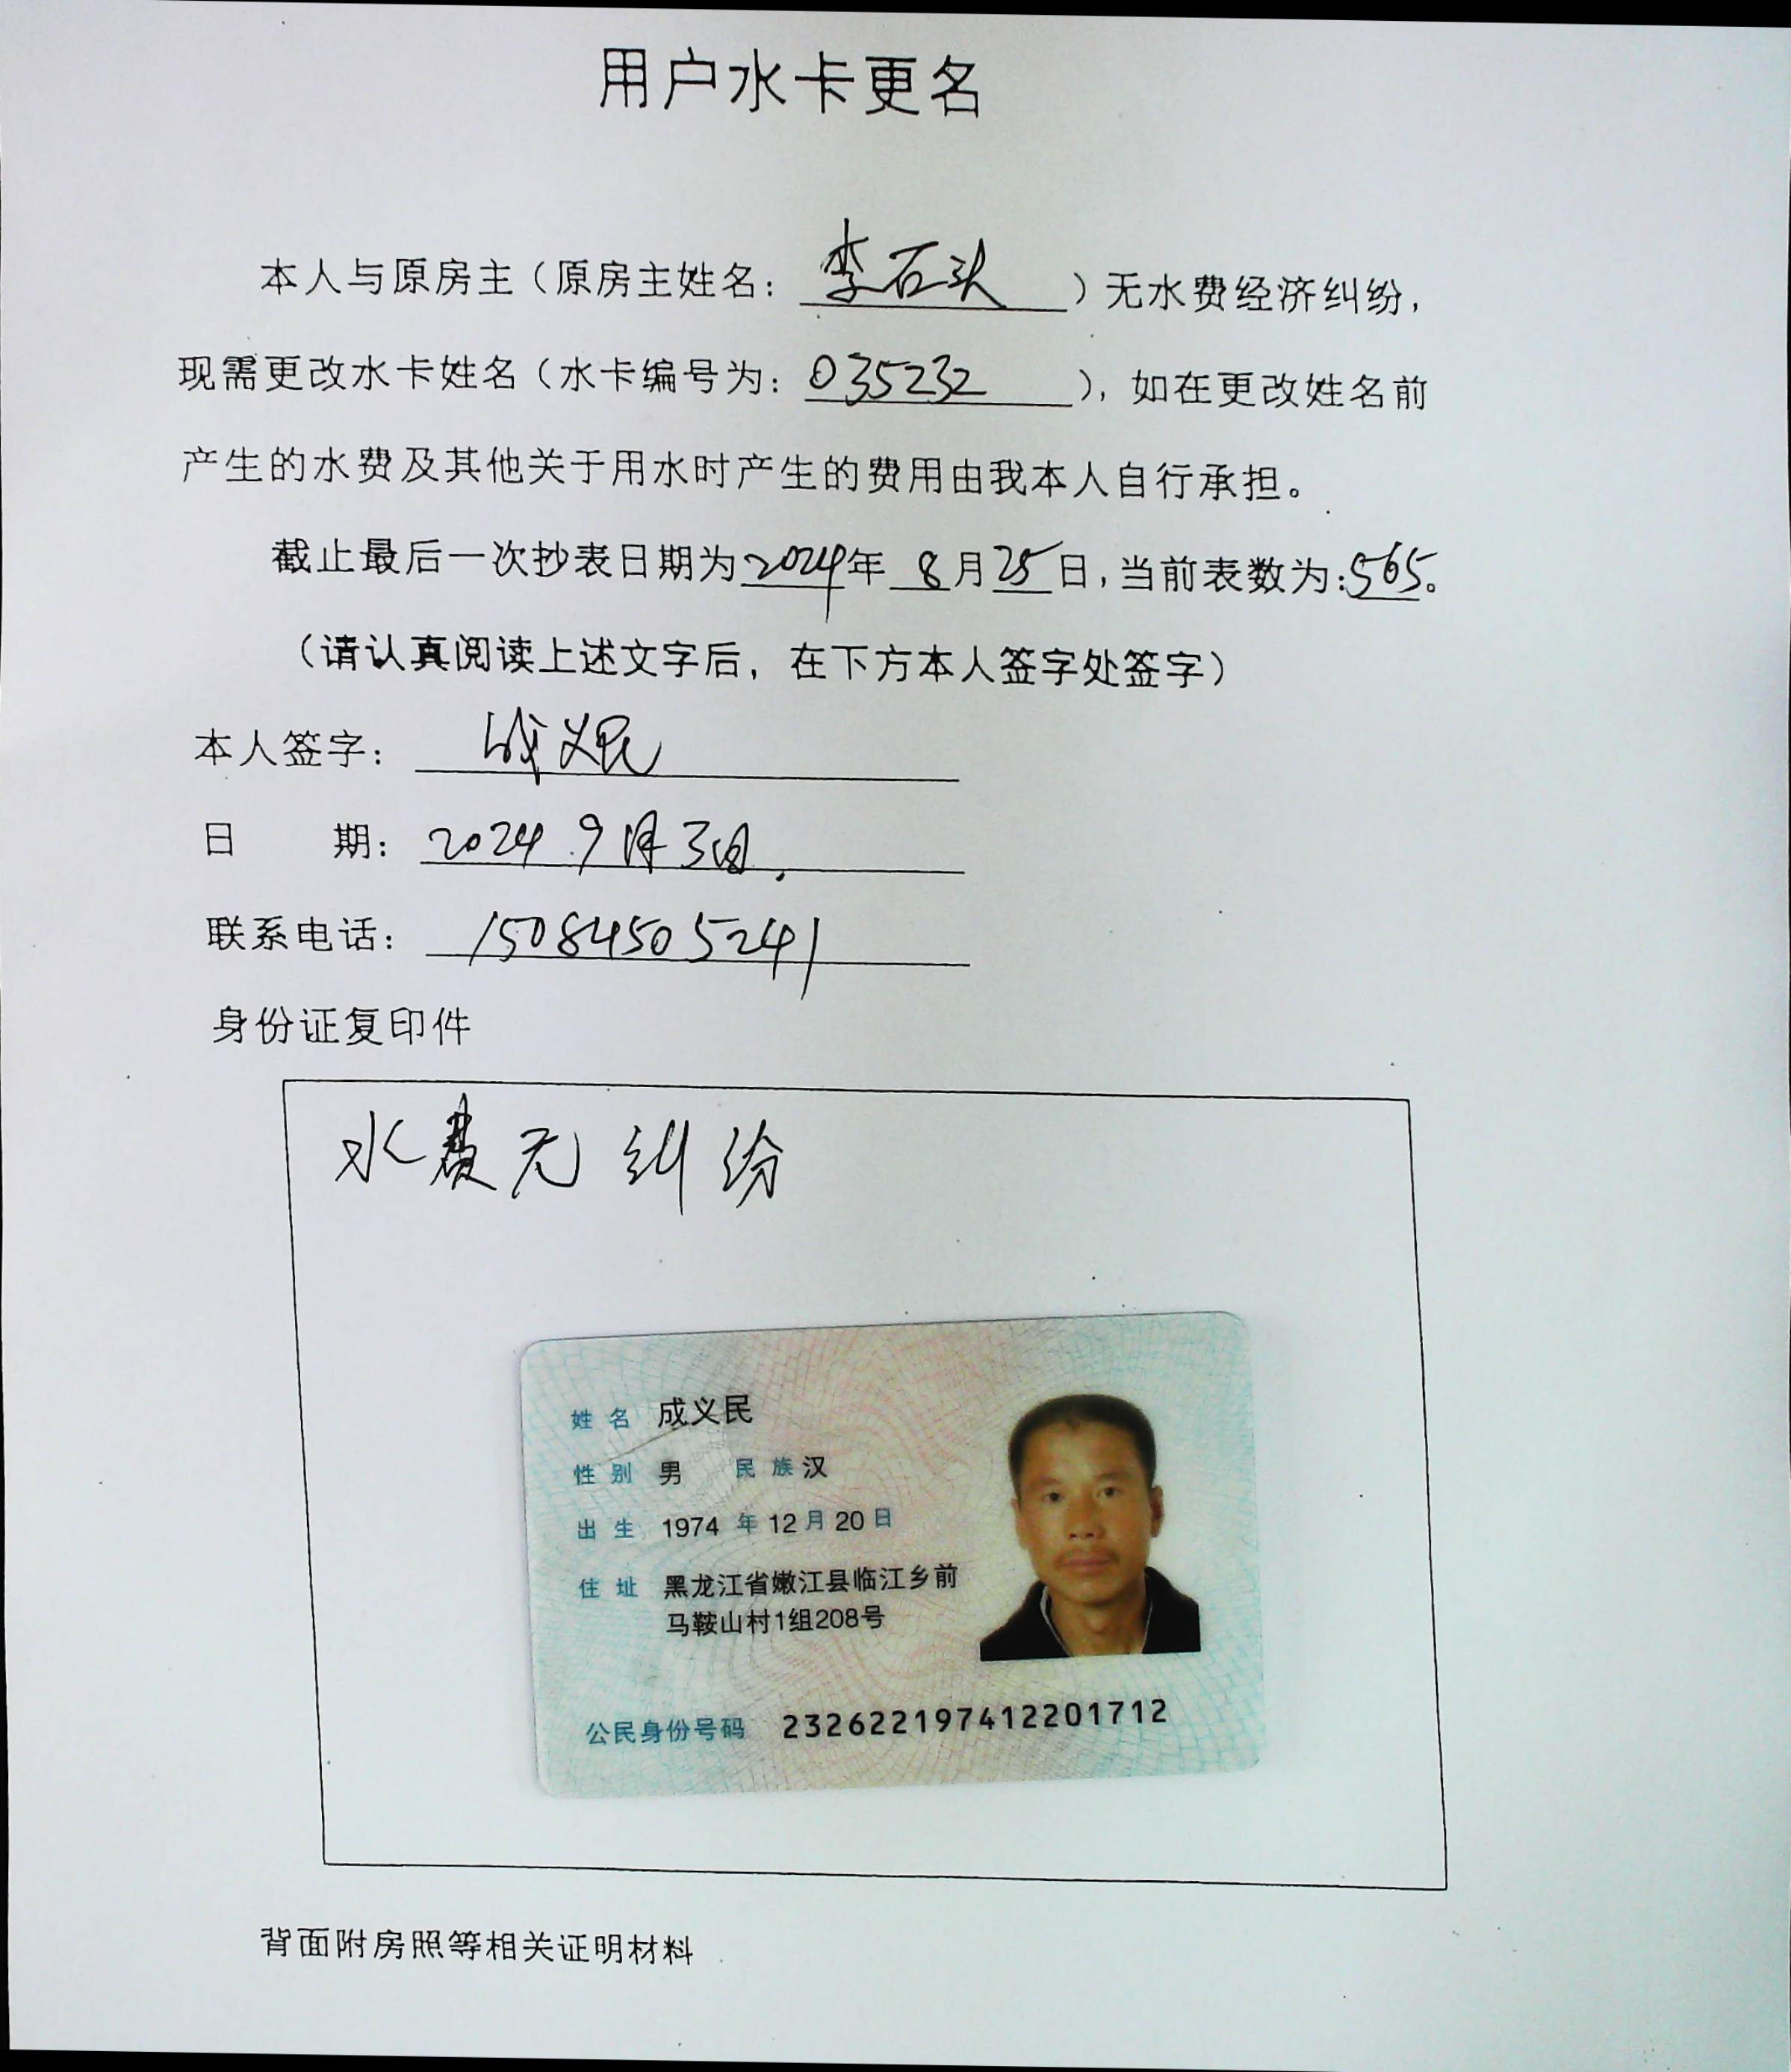 用户水卡更名
本人与原房主（原房主姓名：李石头）无水费经济纠纷，
现需更改水卡姓名（水卡编号为：035232），如在更改姓名前
产生的水费及其他关于用水时产生的费用由我本人自行承担。
截止最后一次抄表日期为2024年8月25日，当前表数为：565。
（请认真阅读上述文字后，在下方本人签字处签字）
本人签字：成义民
日 期：2024.9月3日.
联系电话：15084505241
身份证复印件
水费无纠纷
姓名 成义民
性别 男 民族 汉
出生 1974年12月20日
住址 黑龙江省嫩江县临江乡前
马鞍山村1组208号
公民身份号码 232622197412201712
背面附房照等相关证明材料